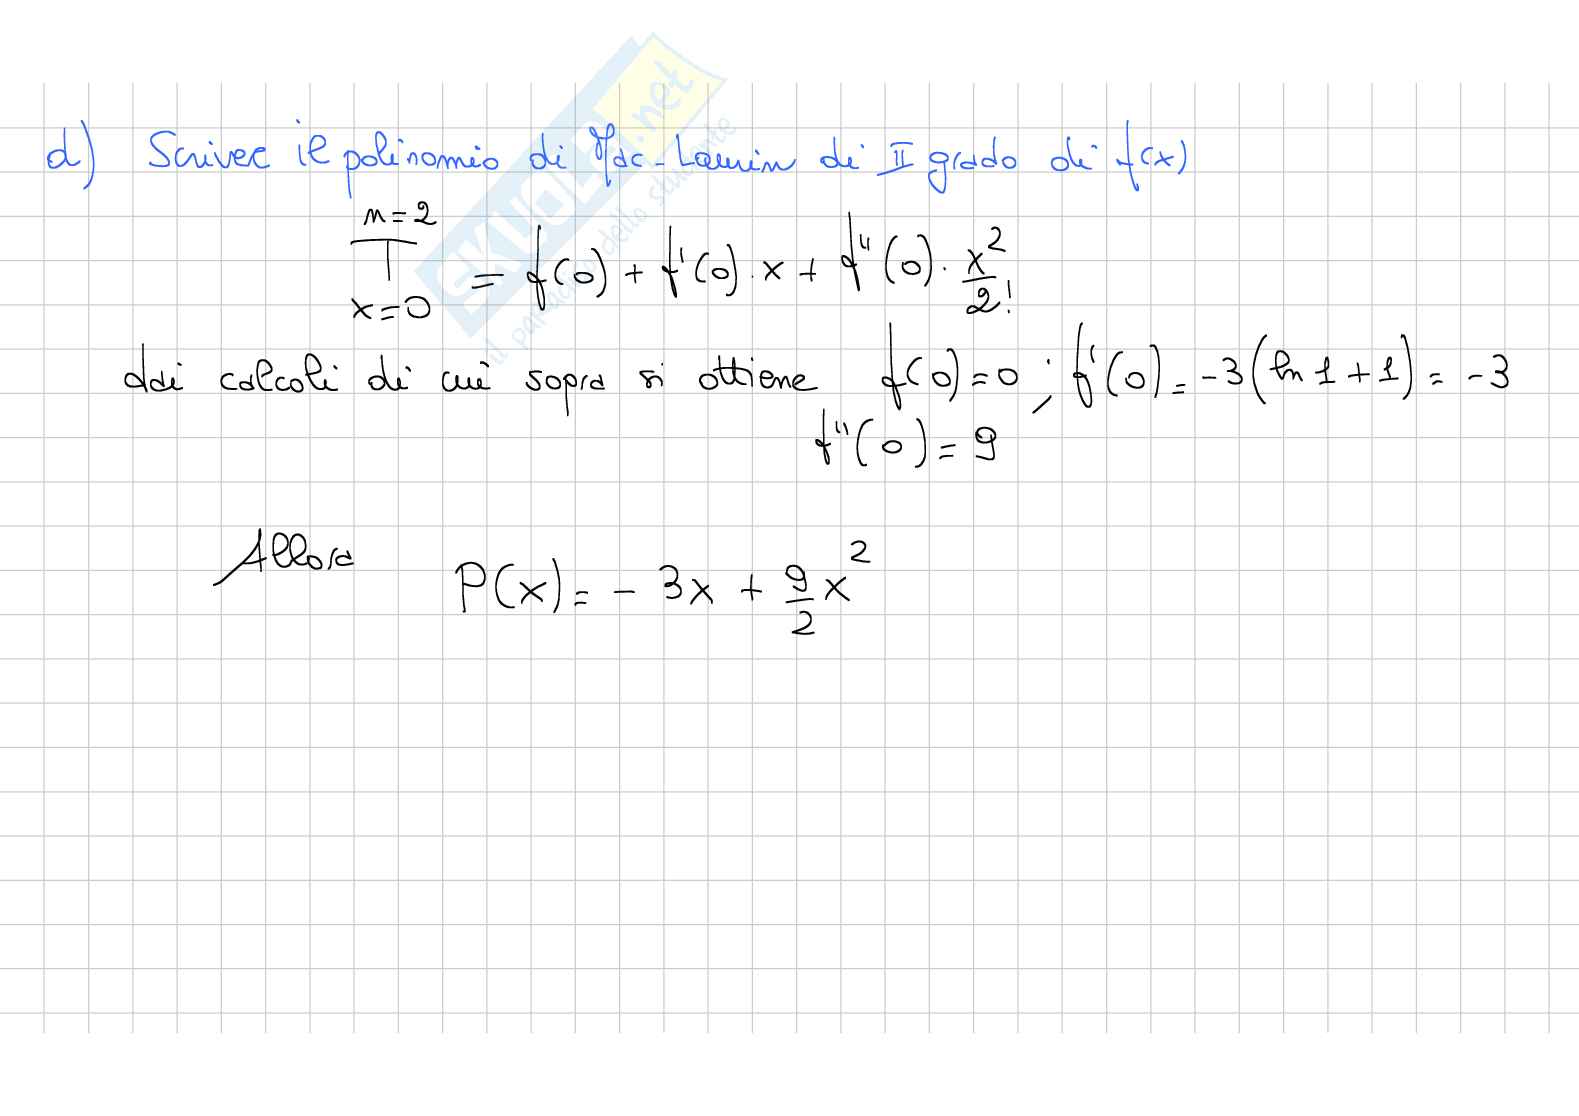 d) Scrivere il polinomio di Mac-Laurin di II grado di f(x)
n=2
T = f(0) + f'(0) · x + f''(0) · x²/2!
x=0
dai calcoli di cui sopra si ottiene f(0)=0 ; f'(0)= -3(ln 1 + 1) = -3
f''(0) = 9
Allora P(x) = - 3x + 9/2 x²
SKUOLA.net
il paradiso dello studente